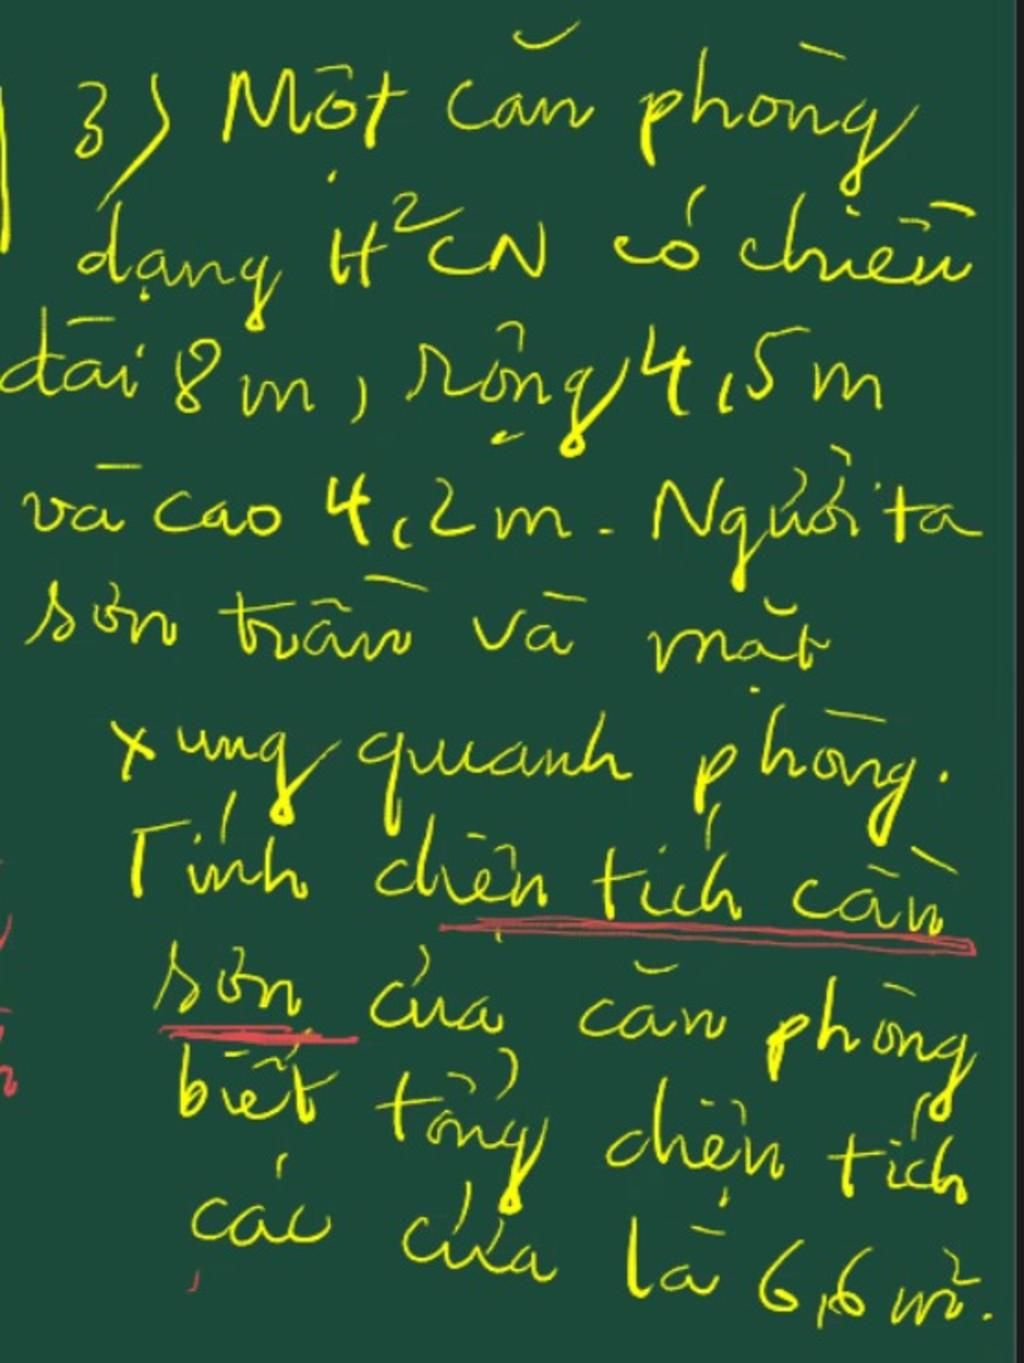 3) Một căn phòng
dạng H²CN có chiều
dài 8m, rộng 4,5m
và cao 4,2m. Người ta
sơn trần và mặt
xung quanh phòng.
Tính diện tích cần
sơn của căn phòng
biết tổng diện tích
các cửa là 6,6m².